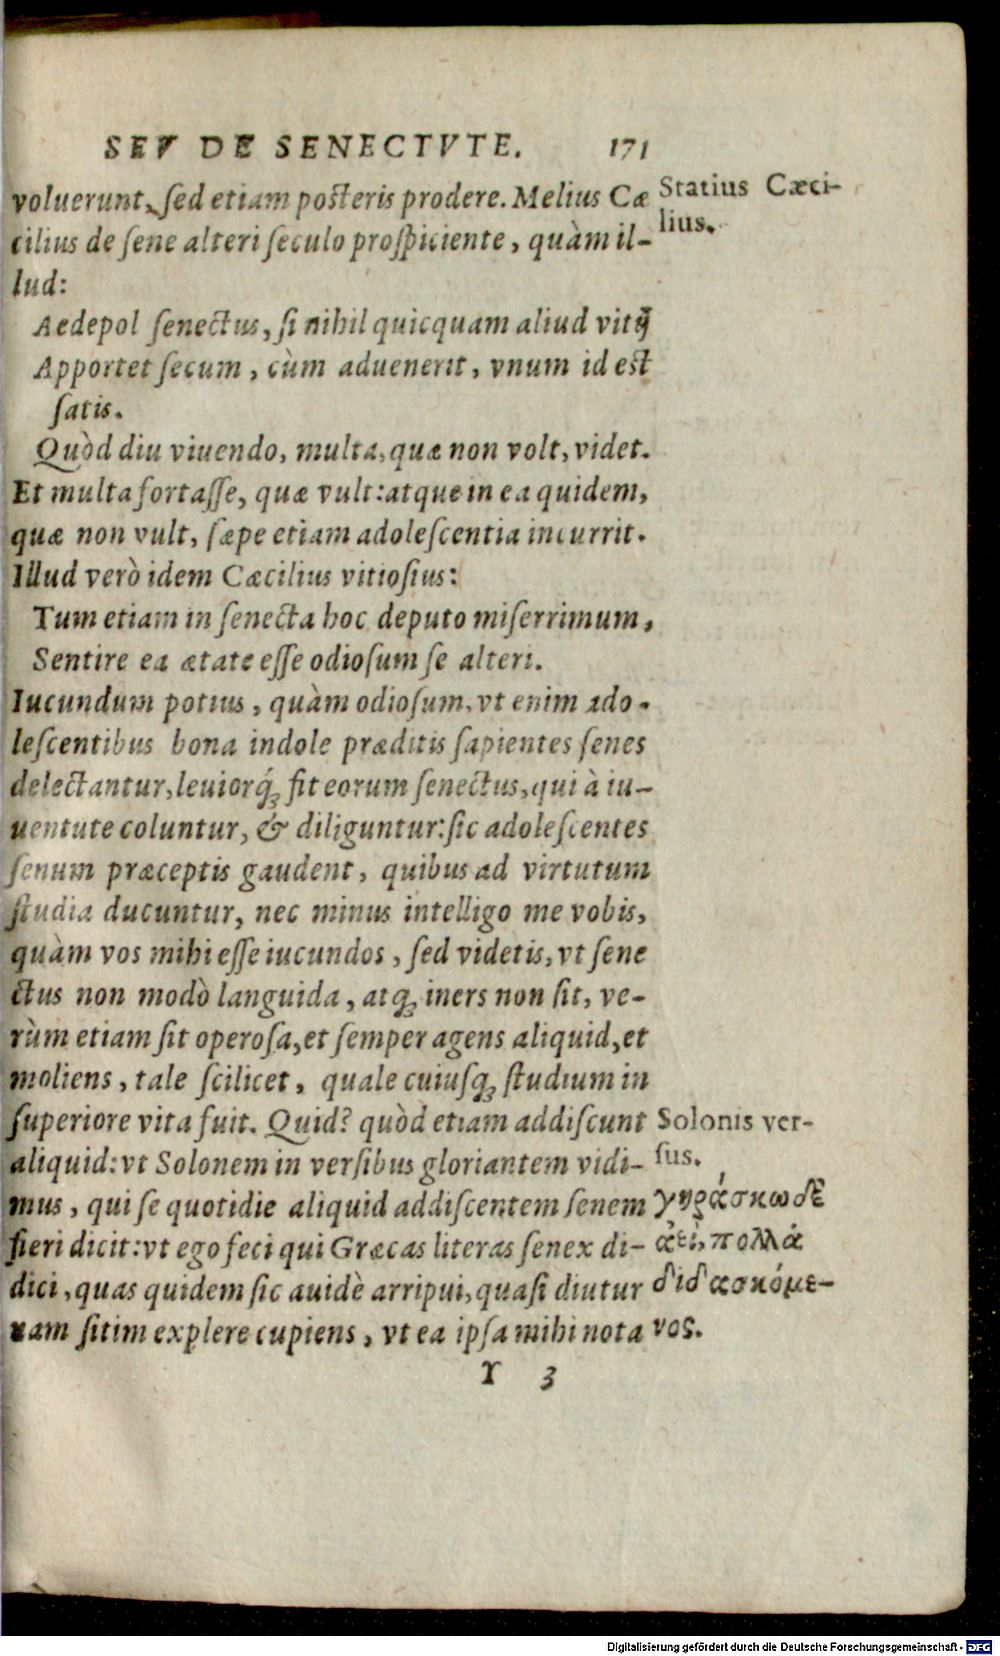 SEV DE SENECTVTE. 171
voluerunt, sed etiam posteris prodere. Melius Cæ
cilius de sene alteri seculo prospiciente, quàm il-
lud:
Aedepol senectus, si nihil quicquam aliud vitij
Apportet secum, cùm aduenerit, vnum id est
satis.
Quòd diu viuendo, multa, quæ non volt, videt.
Et multa fortasse, quæ vult: atque in ea quidem,
quæ non vult, sæpe etiam adolescentia incurrit.
Illud verò idem Cæcilius vitiosius:
Tum etiam in senecta hoc deputo miserrimum,
Sentire ea ætate esse odiosum se alteri.
Iucundum potius, quàm odiosum, vt enim ado-
lescentibus bona indole præditis sapientes senes
delectantur, leuiorq́; fit eorum senectus, qui à iu-
uentute coluntur, & diliguntur: sic adolescentes
senum præceptis gaudent, quibus ad virtutum
studia ducuntur, nec minus intelligo me vobis,
quàm vos mihi esse iucundos, sed videtis, vt sene
ctus non modò languida, atq; iners non sit, ve-
rùm etiam sit operosa, et semper agens aliquid, et
moliens, tale scilicet, quale cuiusq; studium in
superiore vita fuit. Quid? quòd etiam addiscunt
aliquid: vt Solonem in versibus gloriantem vidi-
mus, qui se quotidie aliquid addiscentem senem
fieri dicit: vt ego feci qui Græcas literas senex di-
dici, quas quidem sic auidè arripui, quasi diutur
nam sitim explere cupiens, vt ea ipsa mihi nota
Y 3
Statius Cæci-
lius.
Solonis ver-
sus.
γηράσκω δὲ
ἀεὶ, πολλὰ
διδασκόμε-
νος.
Digitalisierung gefördert durch die Deutsche Forschungsgemeinschaft - DFG